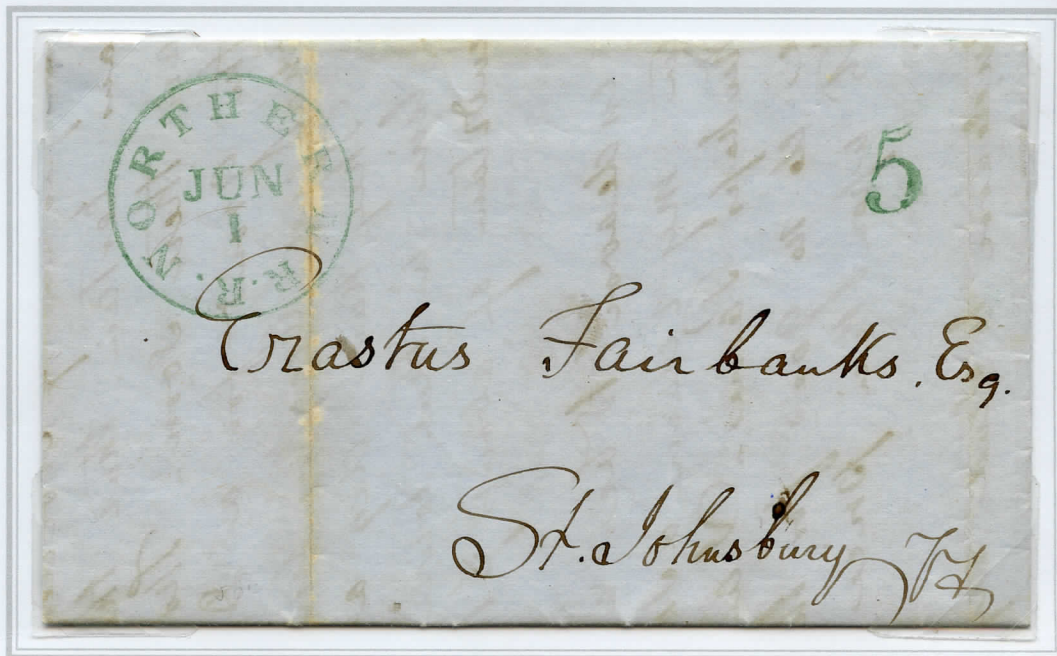 NORTHERN R.R.
JUN
1
5
Erastus Fairbanks. Esq.
St. Johnsbury Vt